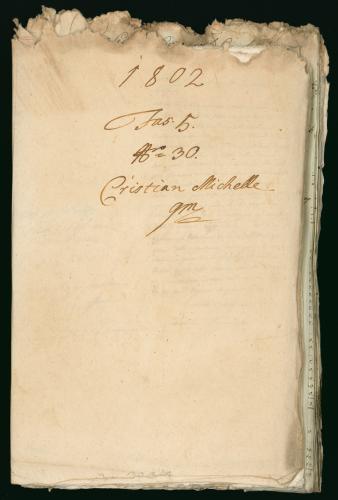 1802
Fas. 5.
Nro 30.
Cristian Michelle
qm